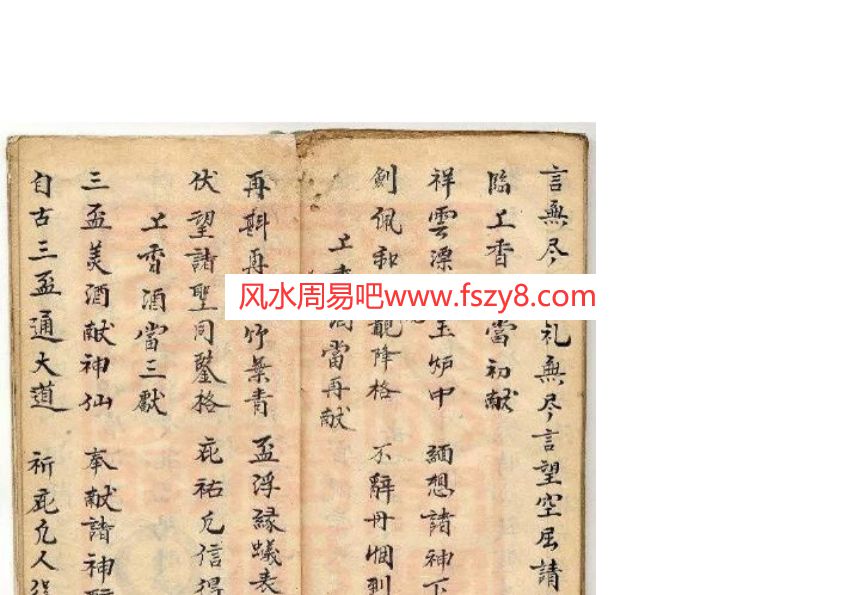 言無尽礼無尽言望空屈請
臨上香當初献
祥雲漂玉炉中 緬想諸神下
劍佩和龍降格 不辞丹悃到
上香酒當再献
再斟再竹葉青 盃浮緑蟻表
伏望諸聖同鑒格 庇祐凡信得
上香酒當三獻
三盃美酒献神仙 奉献諸神
自古三盃通大道 祈庇凡人
风水周易吧www.fszy8.com